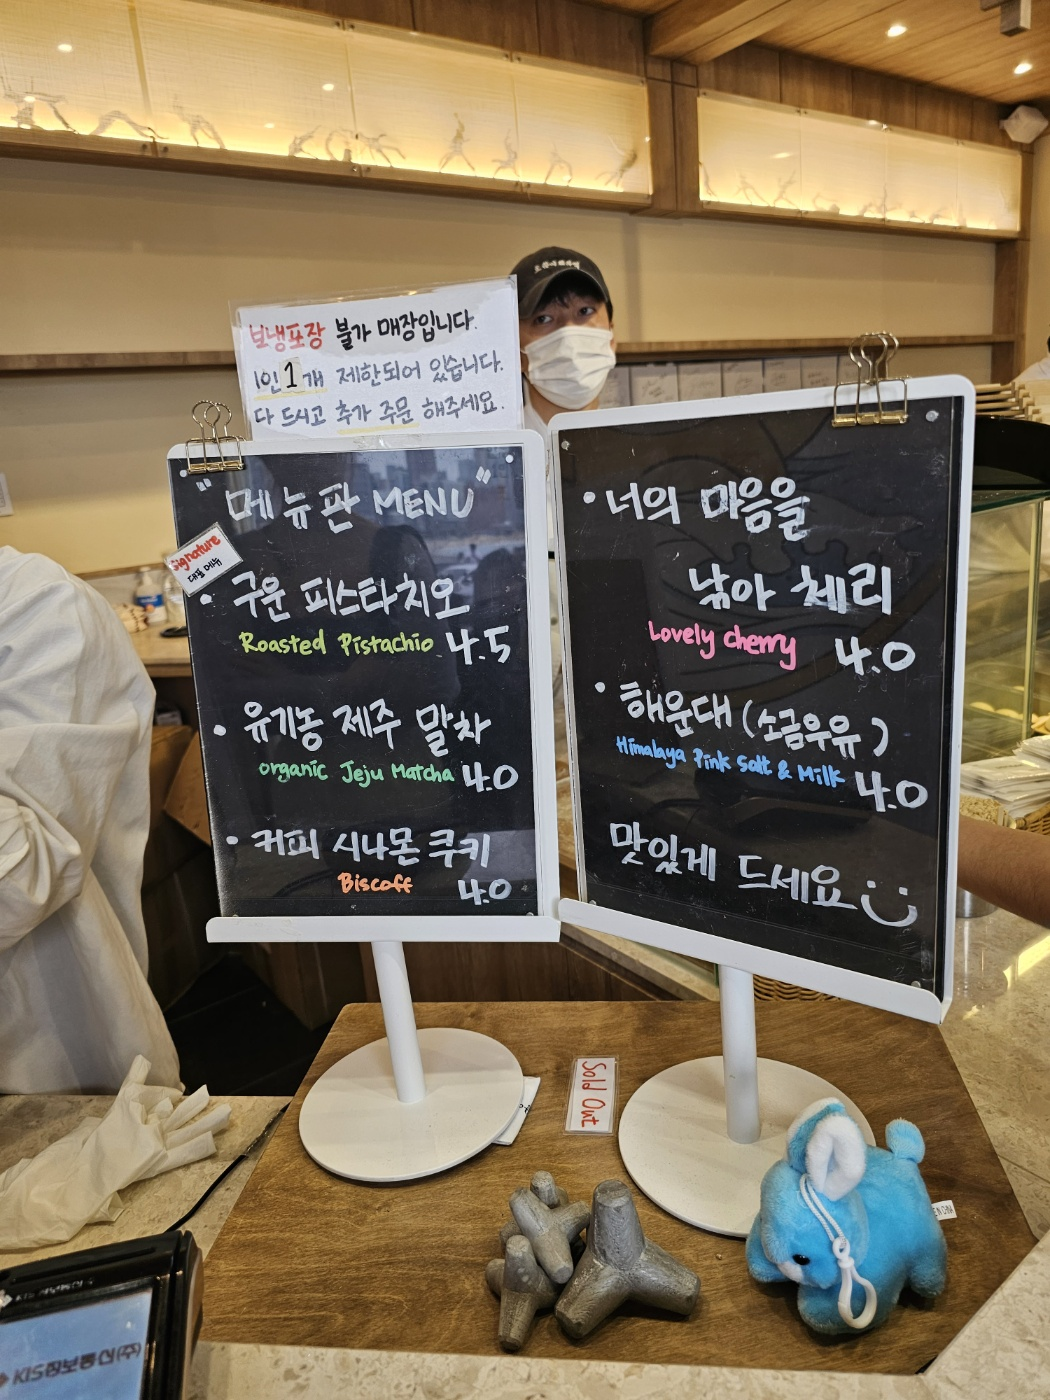 보냉포장 불가 매장입니다.
1인 1개 제한되어 있습니다.
다 드시고 추가 주문 해주세요.
"메뉴판 MENU"
Signature
대표 메뉴
• 구운 피스타치오
Roasted Pistachio 4.5
• 유기농 제주 말차
organic Jeju Matcha 4.0
• 커피 시나몬 쿠키
Biscoff 4.0
• 너의 마음을
낚아 체리
Lovely cherry 4.0
• 해운대 (소금우유)
Himalaya Pink Salt & Milk 4.0
맛있게 드세요
Sold Out
KIS정보통신(주)